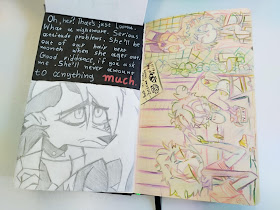 Oh, her! That's just Lorna.
What a nightmare. Serious
attitude problems. She'll be
out of our hair next
moment when she ages out.
Good riddance, if you ask
me. She'll never amount
to anything much.